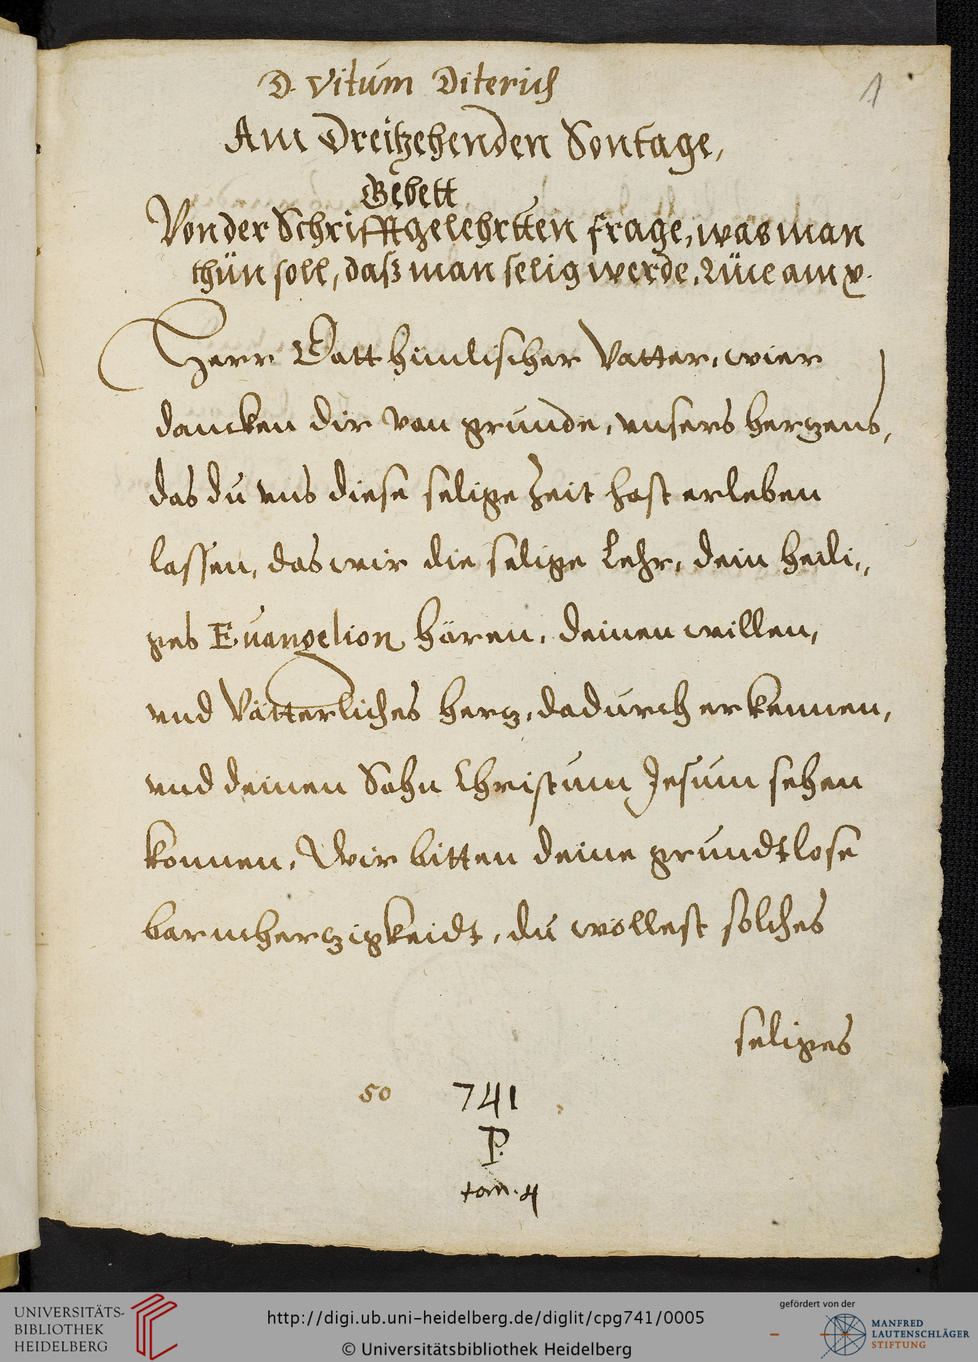 D. Vitum Diterich
1
Am Dreitzehenden Sontage,
Gebett
Von der Schrifftgelehrtten frage, was man
thün soll, daß man selig werde. Lüce am x.
Herr Gott himlischer Vatter, wier
dancken dir von grunde, vnsers hertzens,
das du vns diese selige Zeit hast erleben
lassen, das wir die selige Lehr, dein heili„
ges Euangelion hören, deinen willen,
vnd Vätterliches hertz, dadurch erkennen,
vnd deinen Sohn Christum Jesum sehen
konnen, Wir bitten deine grundtlose
barmhertzigkeidt, du wöllest solches
seliges
50 741
P.
tom. 4
UNIVERSITÄTS-
BIBLIOTHEK
HEIDELBERG
http://digi.ub.uni-heidelberg.de/diglit/cpg741/0005
© Universitätsbibliothek Heidelberg
gefördert von der
MANFRED
LAUTENSCHLÄGER
STIFTUNG